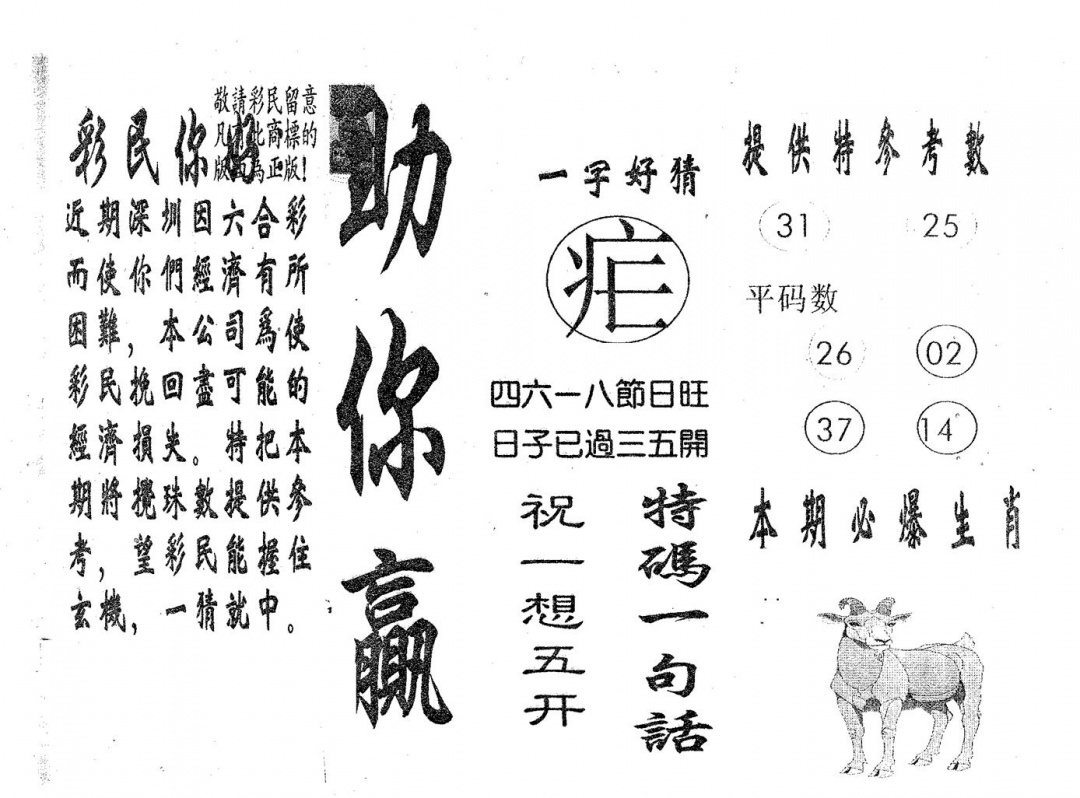 敬請彩民留意
凡有此商標的
版面為正版!
彩民你好
近期深圳因六合彩
而使你們經濟有所
困難，本公司爲使
彩民挽回盡可能的
經濟損失。特把本
期將攪珠數提供參
考，望彩民能握住
玄機，一猜就中。
助你贏
一字好猜
疟
四六一八節日旺
日子已過三五開
特碼一句話
祝一想五开
提供特參考數
31 25
平码数
26 02
37 14
本期必爆生肖